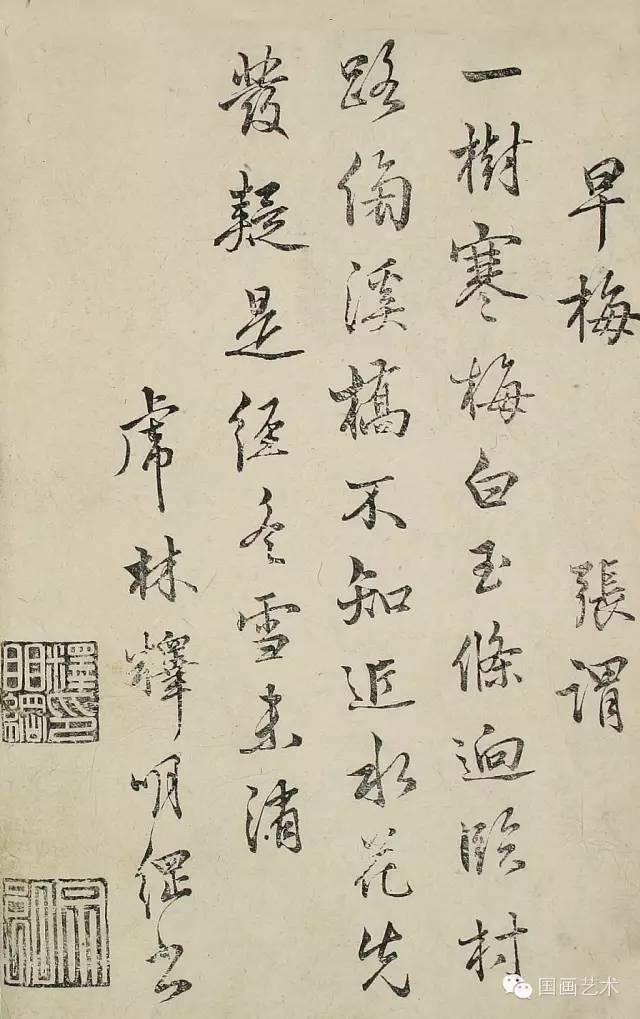 早梅 張謂
一樹寒梅白玉條迥臨村
路傍溪橋不知近水花先
發疑是經冬雪未消
虎林釋明綱書
釋印明綱
国画艺术